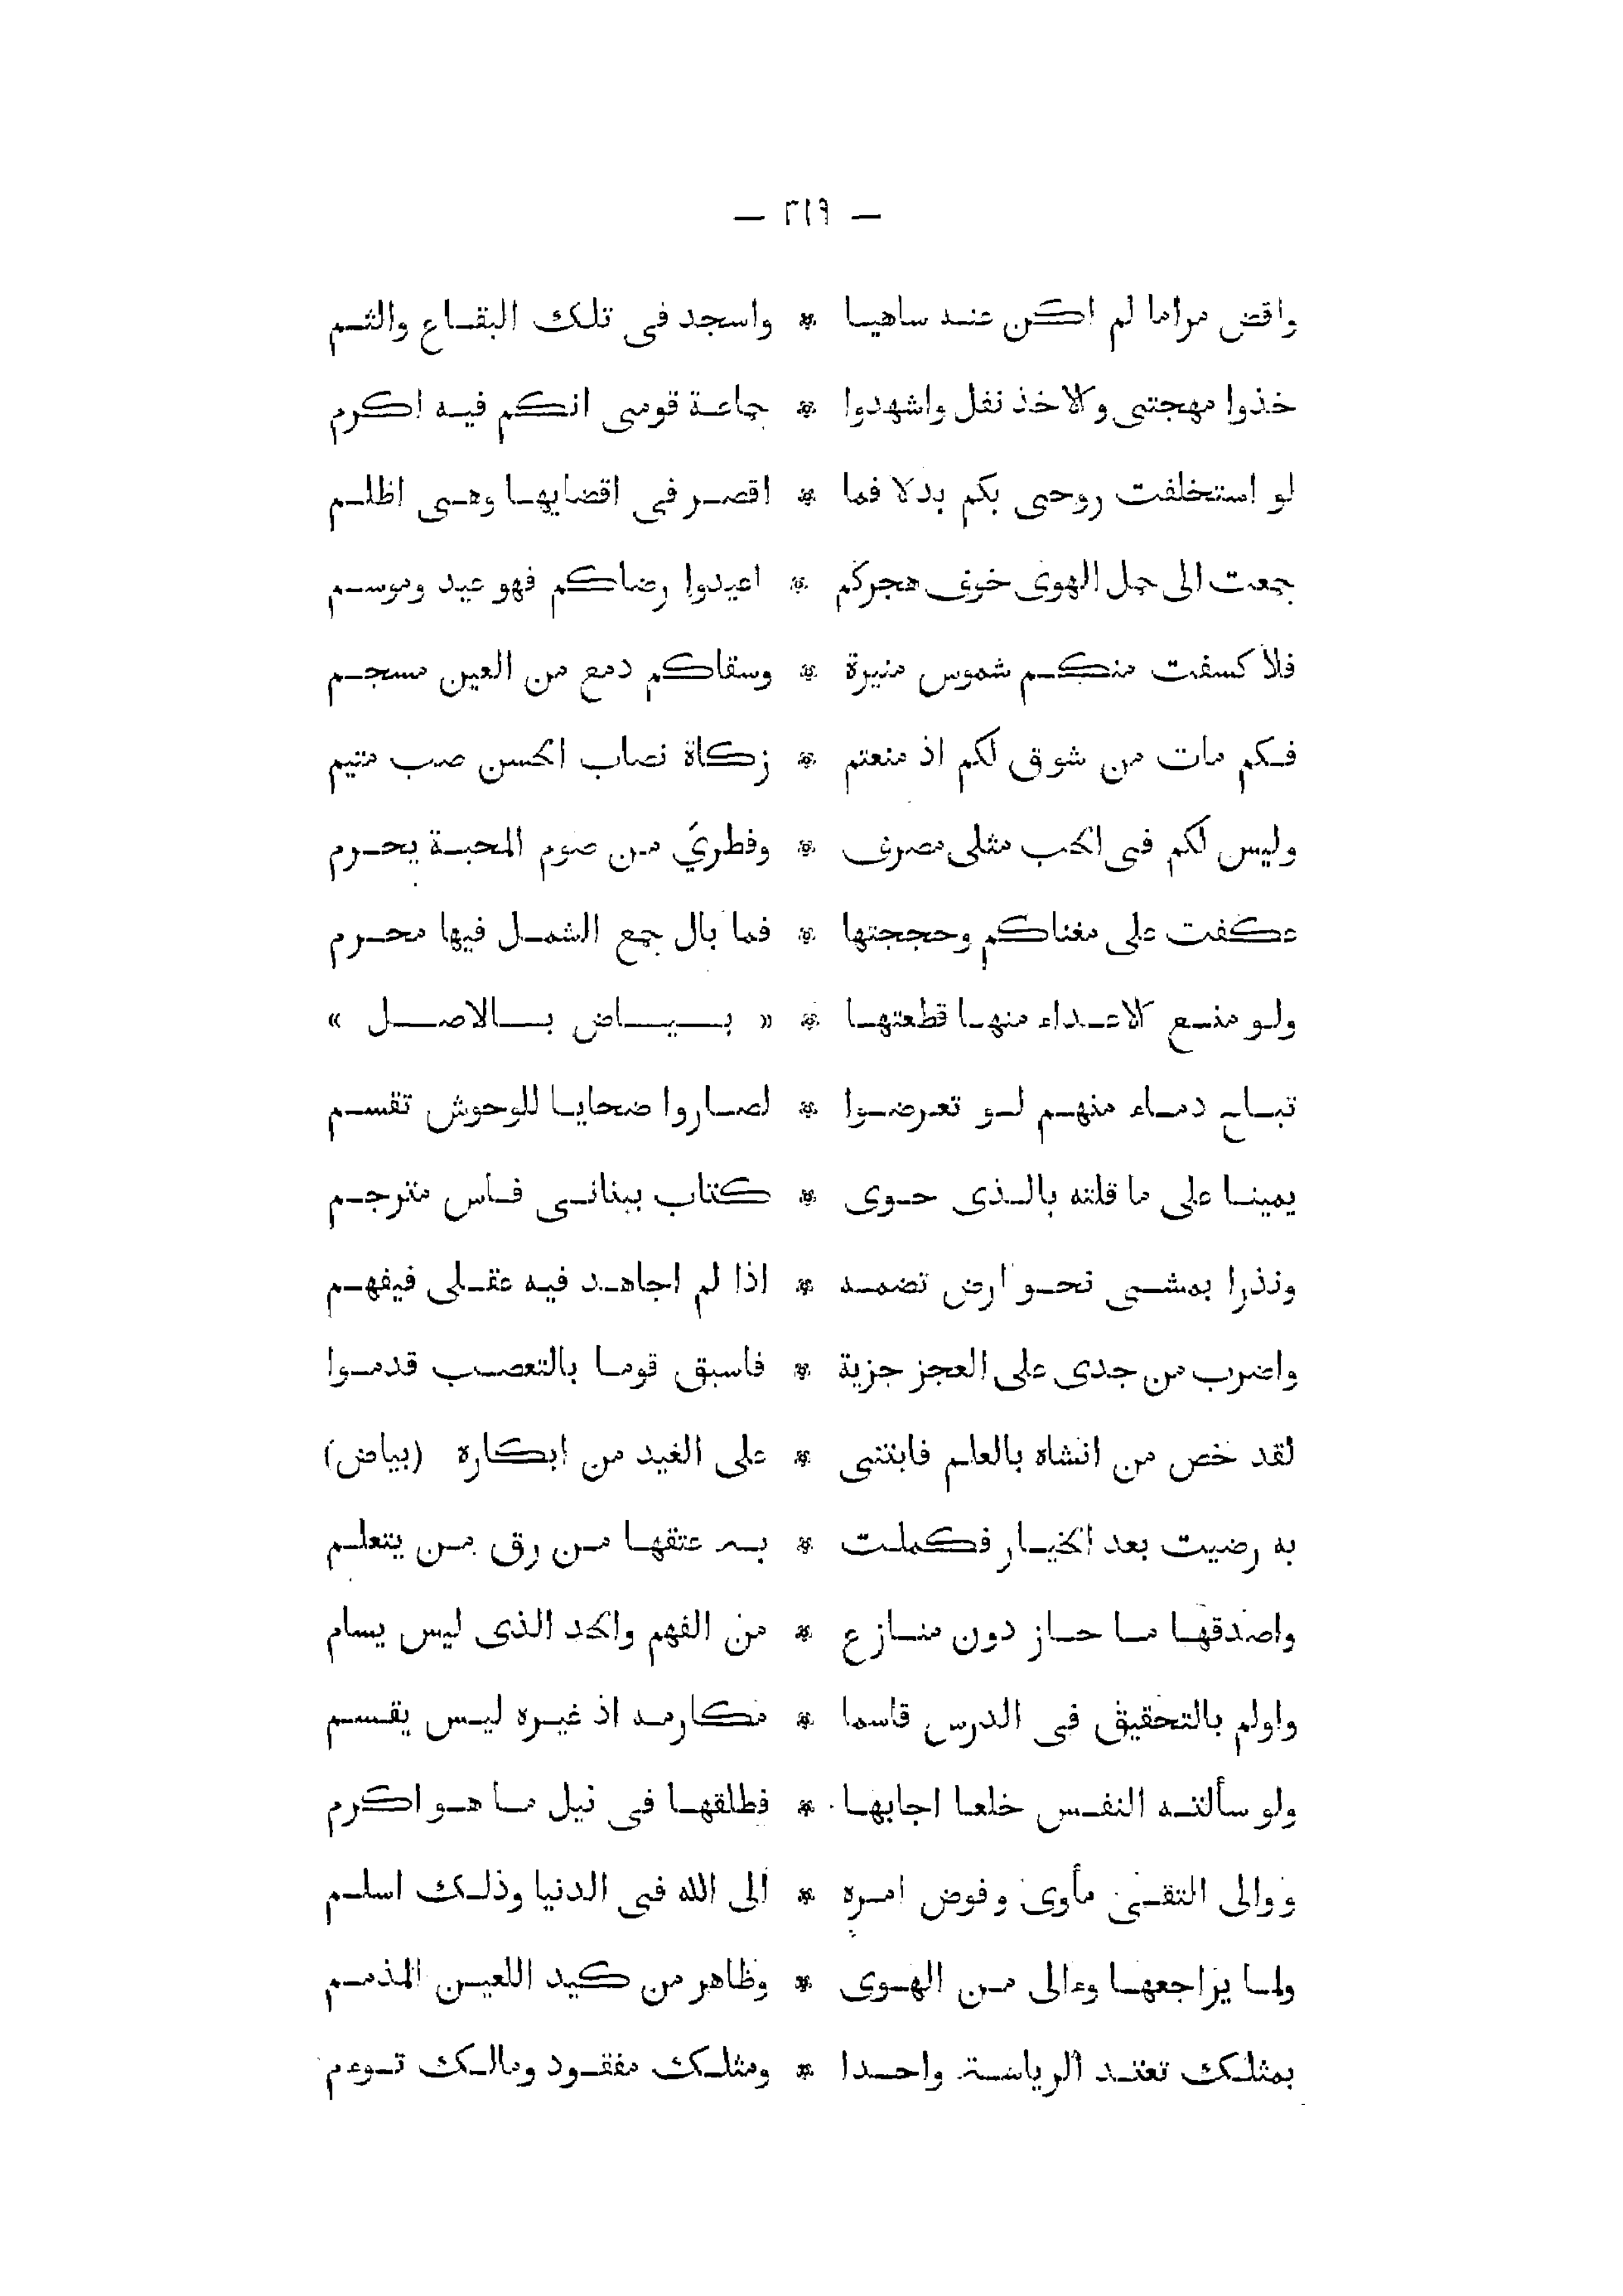 — ٣١٩ —
واقض مراما لم اكن عنه ساهيا * واسجد فى تلك البقاع والثم
خذوا مهجتى والاخذ نفل واشهدوا * جماعة قومى انكم فيه اكرم
لو استخلفت روحى بكم بدلا فما * اقصر فى اقضايها وهى اظلم
جمعت الى جمل الهوى خوف هجركم * اعيدوا رضاكم فهو عيد وموسم
فلا كسفت منكم شموس منيرة * وسقاكم دمع من العين مسجم
فكم مات من شوق لكم اذ منعتم * زكاة نصاب الحسن صب متيم
وليس لكم فى الحب مثلى مصرف * وفطري من صوم المحبة يحرم
عكفت على مغناكم وحججتها * فما بال جمع الشمل فيها محرم
ولو منع الاعداء منها قطعتها * « بياض بالاصل »
تباح دماء منهم لو تعرضوا * لصاروا ضحايا للوحوش تقسم
يمينا على ما قلته بالذى حوى * كتاب ببنانى فاس مترجم
ونذرا بمشى نحو ارض تضمه * اذا لم اجاهد فيه عقلى فيفهم
واضرب من جدى على العجز جزية * فاسبق قوما بالتعصب قدموا
لقد خص من انشاه بالعلم فابتنى * على الغيد من ابكاره (بياض)
به رضيت بعد الخيار فكملت * به عتقها من رق من يتعلم
واصدقها ما حاز دون منازع * من الفهم والحد الذى ليس يسام
واولم بالتحقيق فى الدرس قاسما * مكارمه اذ غيره ليس يقسم
ولو سألته النفس خلعا اجابها * فطلقها فى نيل ما هو اكرم
ووالى التقى مأوى وفوض امره * الى الله فى الدنيا وذلك اسلم
ولما يراجعها وءالى من الهوى * وظاهر من كيد اللعين المذمم
بمثلك تعتد الرياسة واحدا * ومثلك مفقود ومالك توءم